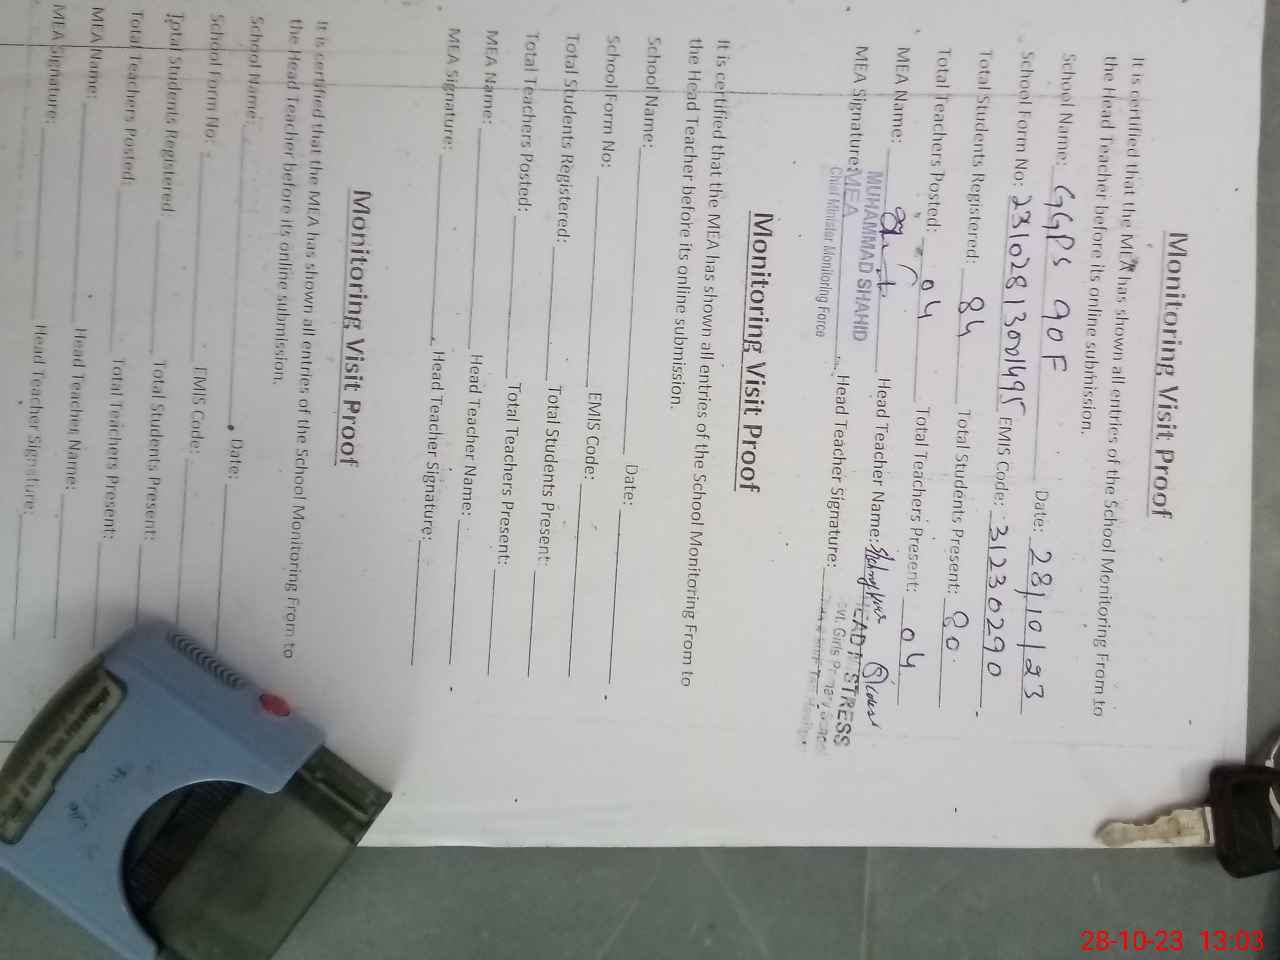 Monitoring Visit Proof
It is certified that the MEA has shown all entries of the School Monitoring From to
the Head Teacher before its online submission.
School Name: GGPS 90F Date: 28/10/23
School Form No: EMIS Code: 31230290
Total Students Registered: 84 Total Students Present: 80
Total Teachers Posted: 04 Total Teachers Present: 04
MEA Name: Head Teacher Name:
MUHAMMAD SHAHID
MEA Signature: MEA Head Teacher Signature: STRESS
Chief Minister Monitoring Force Govt. Girls Primary
Monitoring Visit Proof
It is certified that the MEA has shown all entries of the School Monitoring From to
the Head Teacher before its online submission.
School Name: Date:
School Form No: EMIS Code:
Total Students Registered: Total Students Present:
Total Teachers Posted: Total Teachers Present:
MEA Name: Head Teacher Name:
MEA Signature: Head Teacher Signature:
Monitoring Visit Proof
It is certified that the MEA has shown all entries of the School Monitoring From to
the Head Teacher before its online submission.
School Name: Date:
School Form No: EMIS Code:
Total Students Registered: Total Students Present:
Total Teachers Posted: Total Teachers Present:
MEA Name: Head Teacher Name:
MEA Signature: Head Teacher Signature:
28-10-23 13:03